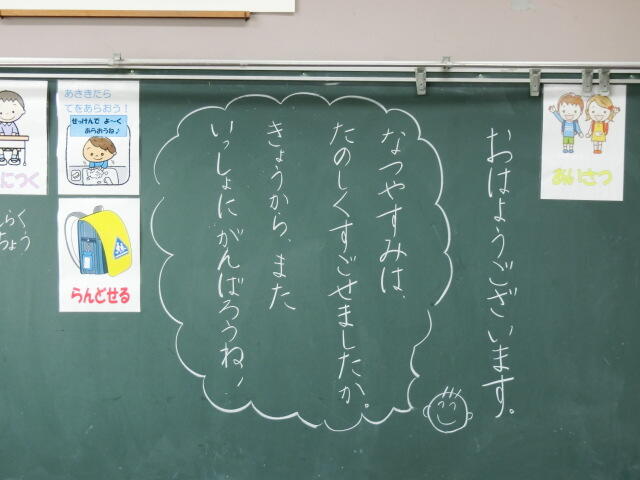 おはようございます。
なつやすみは、
たのしくすごせましたか。
きょうから、また
いっしょにがんばろうね！
あいさつ
あさきたら
てをあらおう！
せっけんで よ〜く
あらおうね♪
らんどせる
につく
らく
ちょう